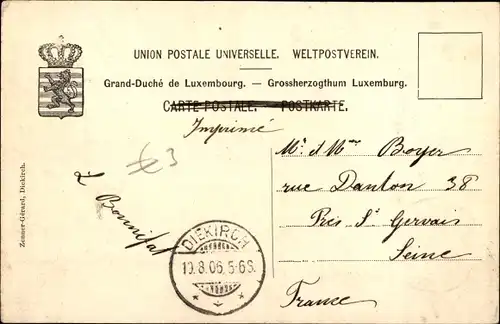 UNION POSTALE UNIVERSELLE. WELTPOSTVEREIN.
Grand-Duché de Luxembourg. — Grossherzogthum Luxemburg.
CARTE POSTALE. POSTKARTE.
Imprimé
Mr & Mme Boyer
rue Danton 38
Prés St Gervais
Seine
France
DIEKIRCH
10.8.06.5-6S.
Zenner-Gérard, Diekirch.